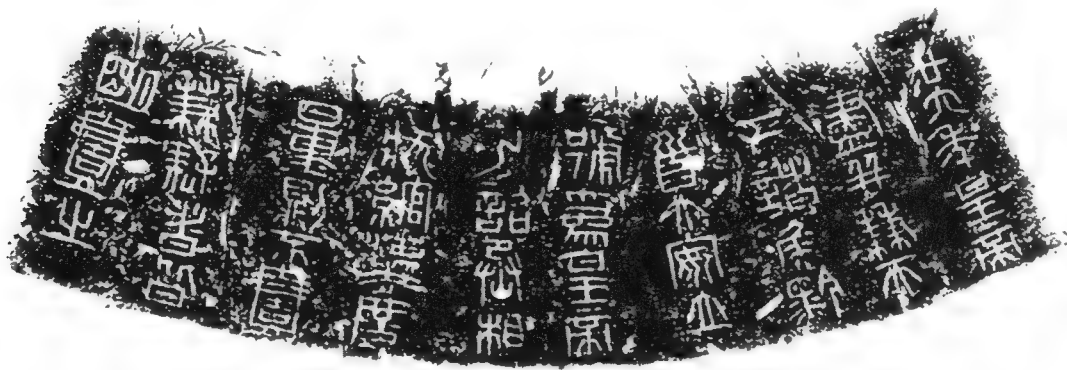 廿六年皇帝
盡并兼天
下諸侯黔
首大安立
號為皇帝
乃詔丞相
狀綰灋度
量則不壹
歉疑者皆
明壹之